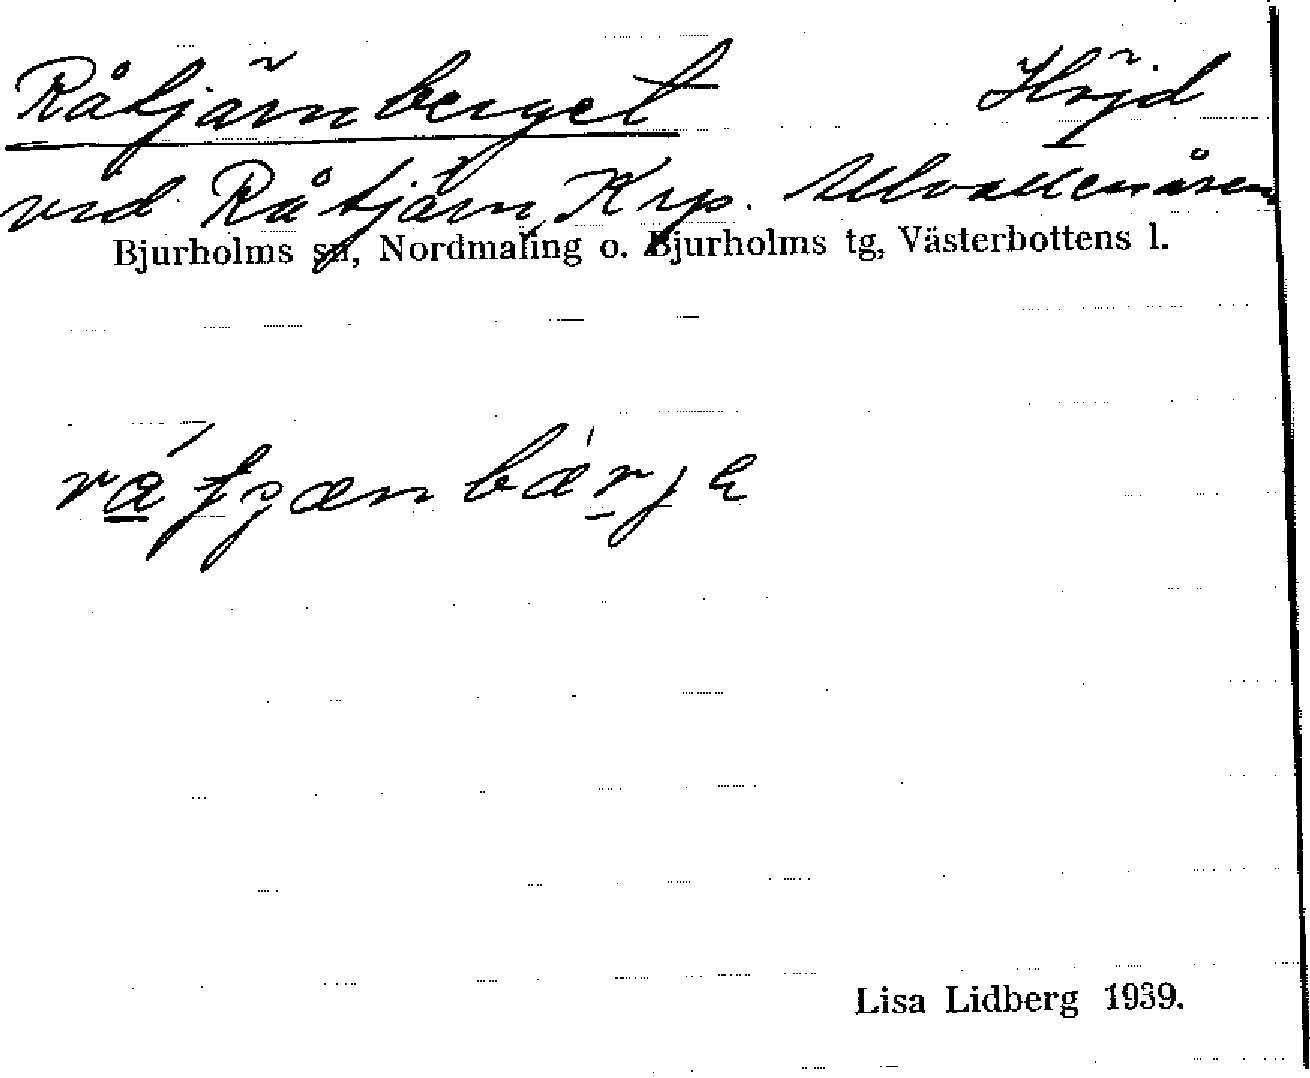 Råtjärnberget Höjd
vid Råtjärn, Krp.
Bjurholms sn, Nordmaling o. Bjurholms tg, Västerbottens l.
Lisa Lidberg 1939.